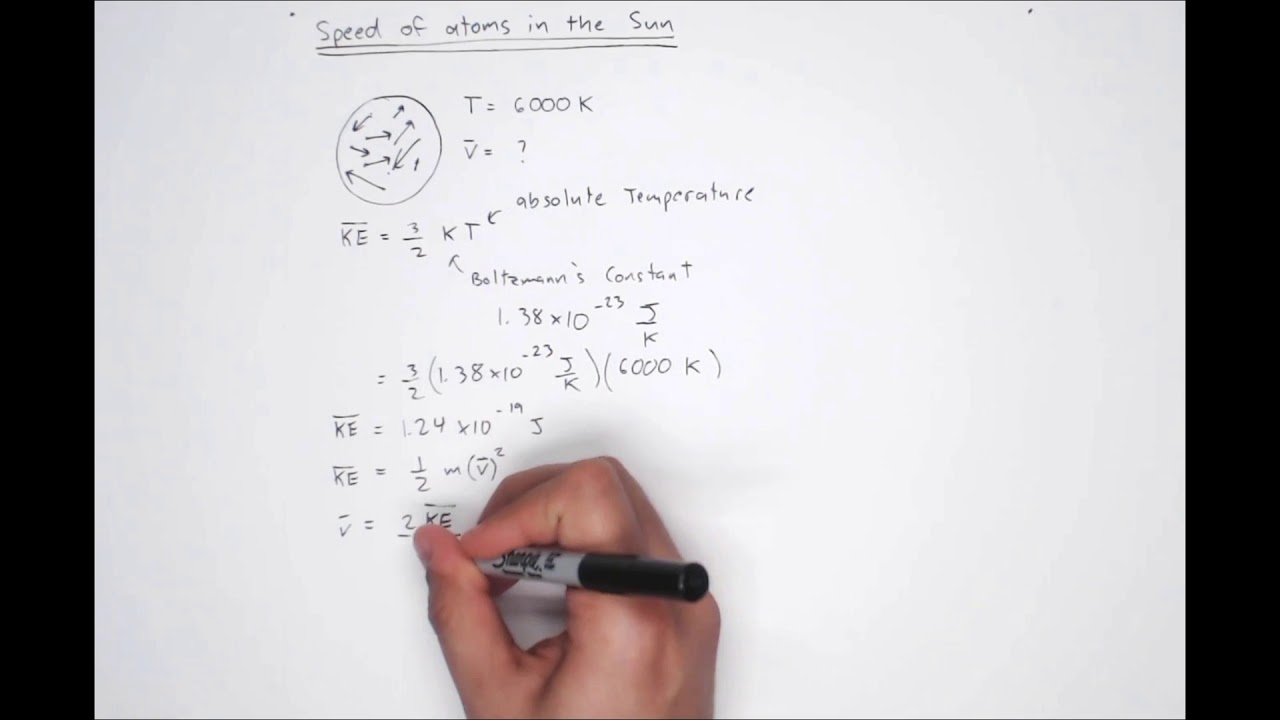 Speed of atoms in the Sun
T = 6000 K
v̅ = ?
absolute Temperature
K̅E̅ = 3/2 K T
Boltzmann's Constant
1.38 × 10⁻²³ J/K
= 3/2 (1.38 × 10⁻²³ J/K)(6000 K)
K̅E̅ = 1.24 × 10⁻¹⁹ J
K̅E̅ = 1/2 m(v̅)²
v̅ = 2 K̅E̅
Sharpie